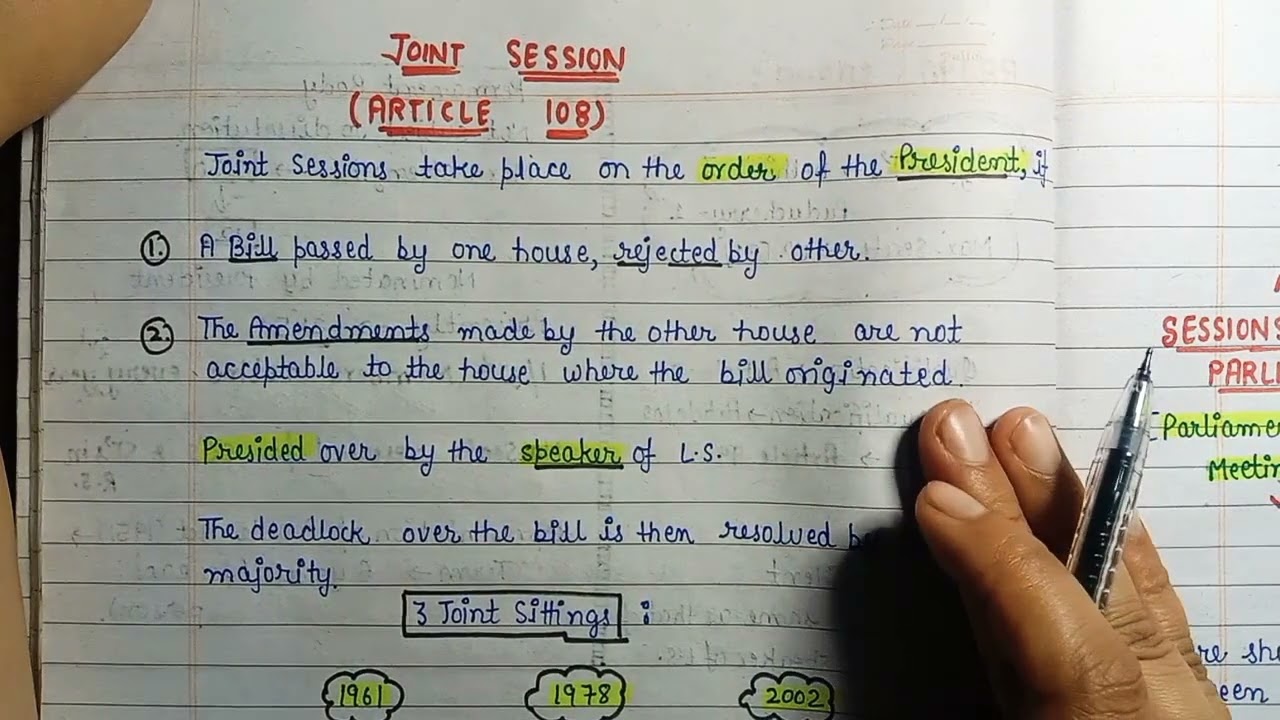 JOINT SESSION
(ARTICLE 108)
Joint Sessions take place on the order of the President, if
1. A Bill passed by one house, rejected by other.
2. The Amendments made by the other house are not
acceptable to the house where the bill originated.
Presided over by the speaker of L.S.
The deadlock over the bill is then resolved
majority.
3 Joint Sittings :
1961 1978 2002
SESSIONS
[Parliame
Meetin